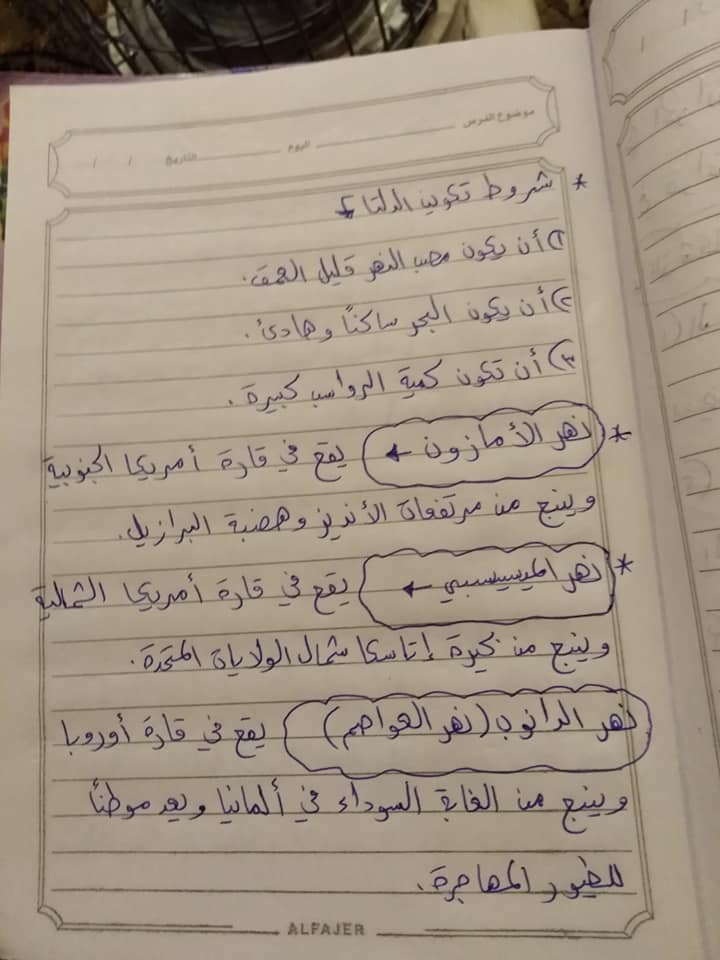 موضوع الدرس اليوم التاريخ / /
* شروط تكوين الدلتا
١) أن يكون مصب النهر قليل العمق.
٢) أن يكون البحر ساكناً وهادئ.
٣) أن تكون كمية الرواسب كبيرة.
* نهر الأمازون ← يقع في قارة أمريكا الجنوبية
وينبع من مرتفعات الأنديز وهضبة البرازيل.
* نهر الميسيسبي ← يقع في قارة أمريكا الشمالية
وينبع من بحيرة إتاسكا شمال الولايات المتحدة.
نهر الدانوب (نهر العواصم) يقع في قارة أوروبا
وينبع من الغابة السوداء في ألمانيا ويعد موطناً
للطيور المهاجرة.
ALFAJER